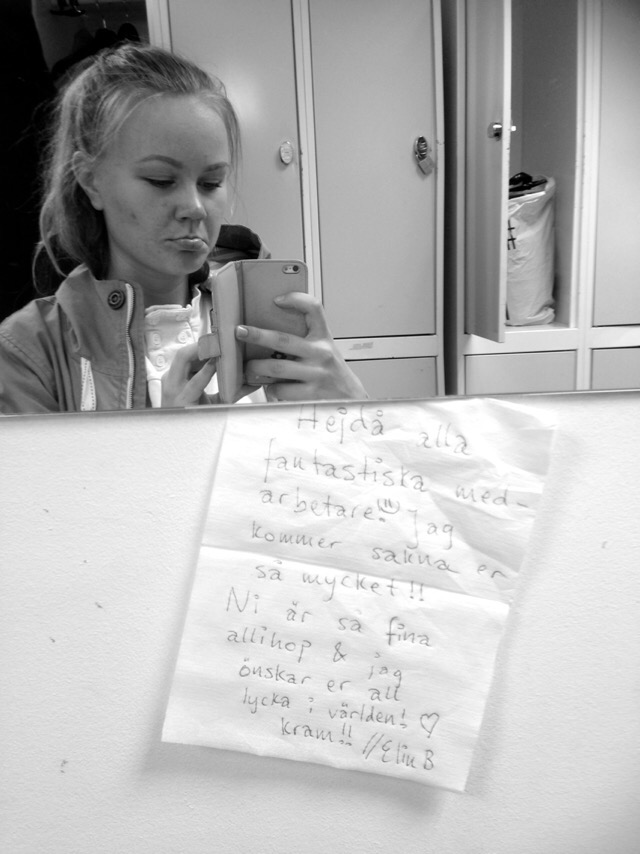 Hejdå alla
fantastiska med-
arbetare! Jag
kommer sakna er
så mycket!!
Ni är så fina
allihop & jag
önskar er all
lycka i världen! ♡
kram!! //Elin B